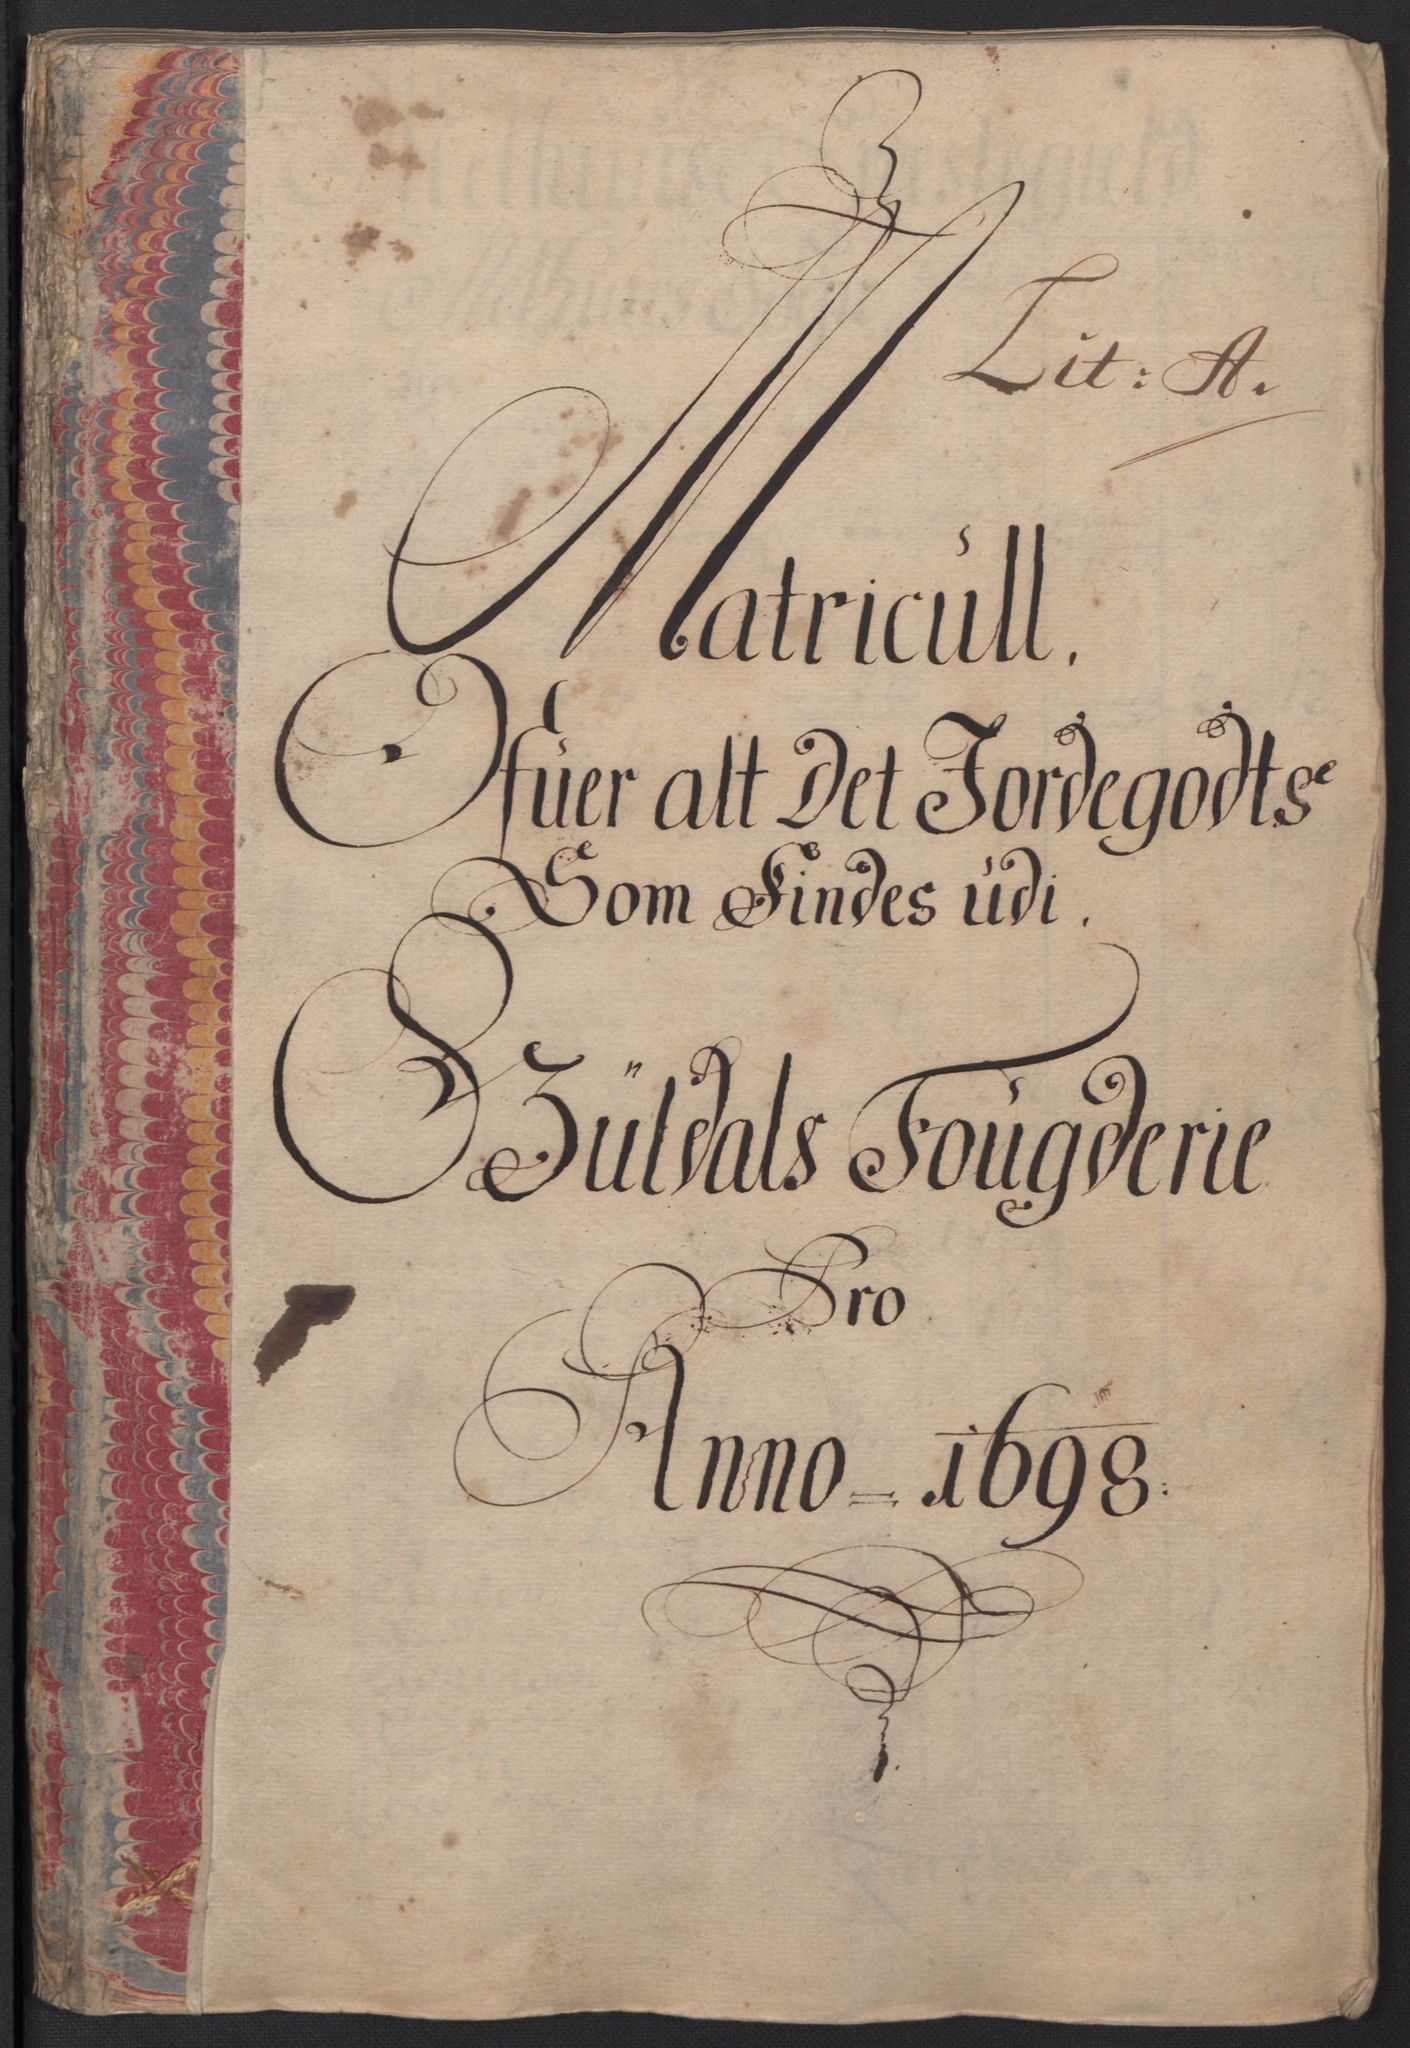 Lit: A.
Matricull.
Ofuer alt Det Jordegodtse
Som Findes udi.
Guldals Fougderie
Pro
Anno = 1698: